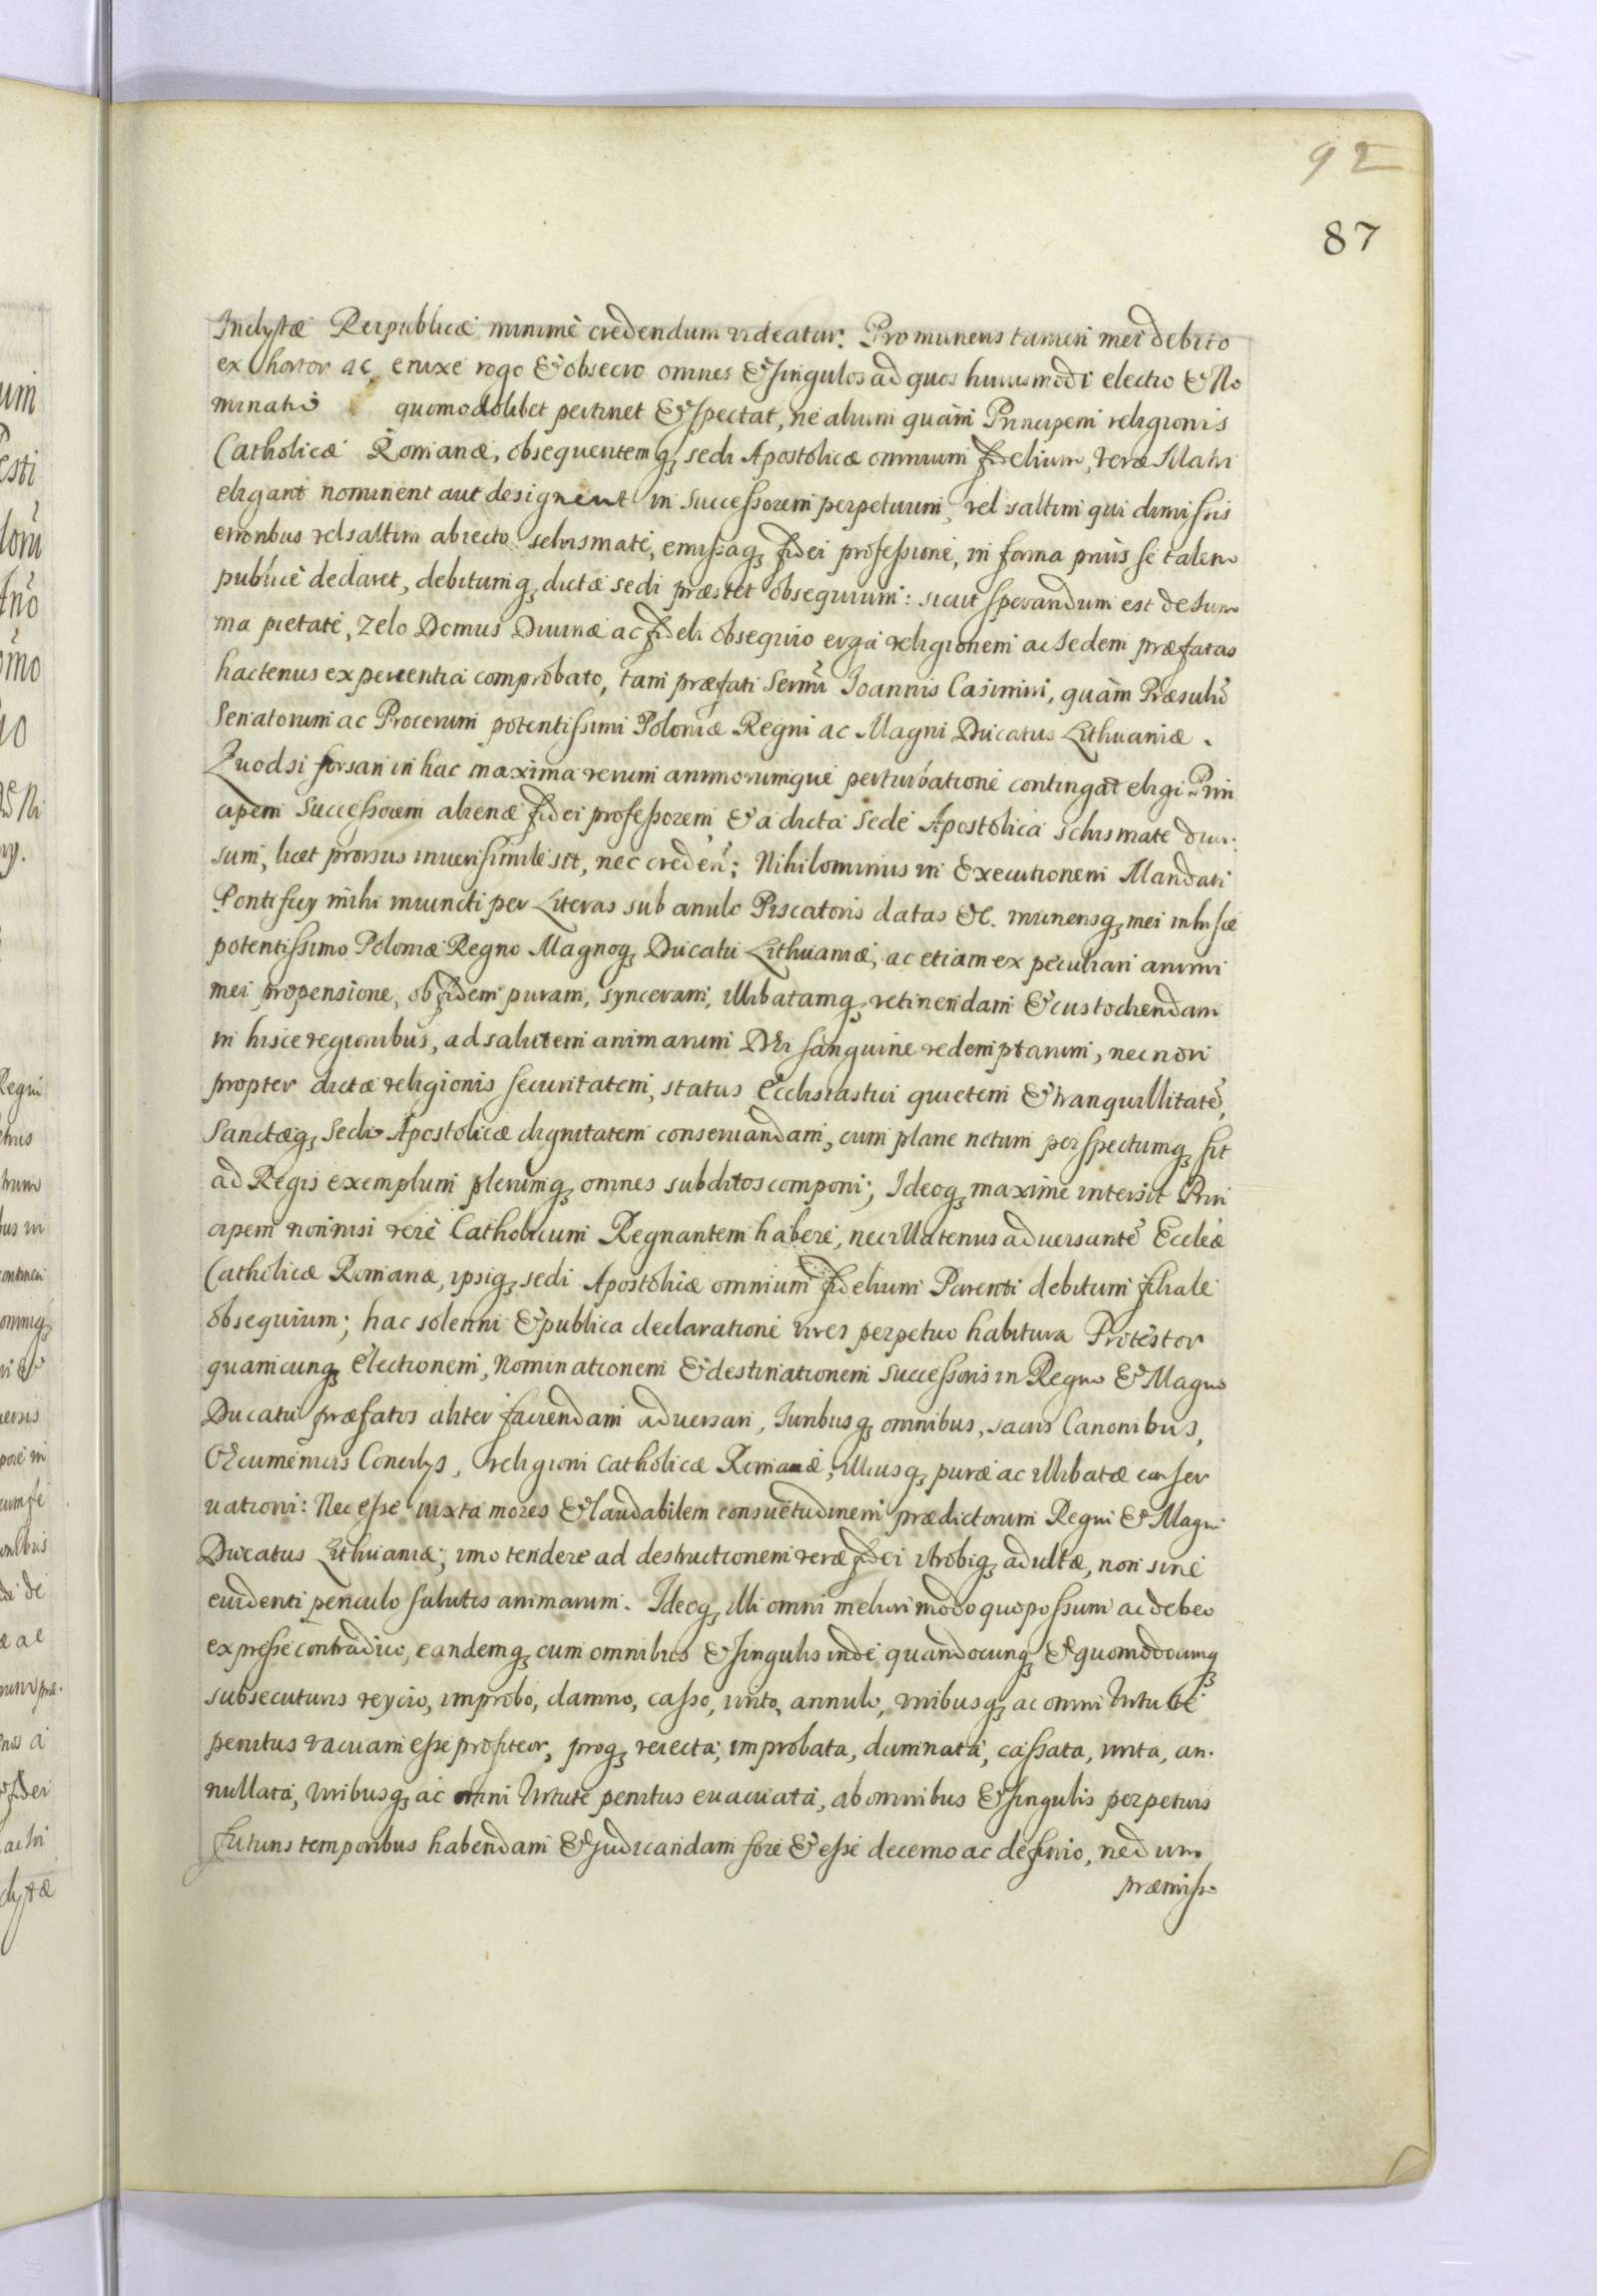 92
87
Inclytæ Reipublicæ minimè credendum videatur. Pro muneris tamen mei debito
exhortor ac enixe rogo & obsecro omnes & singulos ad quos huiusmodi electio & No
minatio quomodolibet pertinet & spectat, ne alium quàm Principem religionis
Catholicæ Romanæ, obsequentemq, sedi Apostolicæ omnium fidelium, veræ Matri
eligant nominent aut designent in Successorem perpetuum, vel saltim qui dimissis
erroribus vel saltim abiecto schismate, emissaq, fidei professione, in forma priùs se talem
publicè declaret, debitumq, dictæ sedi præstet obsequium: sicut sperandum est de sum
ma pietate, zelo Domus Diuinæ ac fideli obsequio erga religionem ac Sedem præfatas
hactenus experientia comprobato, tam præfati Sermi Ioannis Casimiri, quàm Præsulũ
Senatorum ac Procerum potentissimi Poloniæ Regni ac Magni Ducatus Lithuaniæ.
Quodsi forsan in hac maxima rerum animorumque perturbatione contingat eligi Prin
cipem Successorem alienæ fidei professorem & a dicta Sede Apostolica schismate diui
sum, licet prorsus inuerisimile sit, nec creden; Nihilominus in Executionem Mandati
Pontificij mihi iniuncti per Literas sub anulo Piscatoris datas &c. munerisq, mei in hisce
potentissimo Poloniæ Regno Magnoq, Ducatu Lithuaniæ, ac etiam ex peculiari animi
mei propensione, ob fidem puram, synceram, illibatamq, retinendam & custodiendam
in hisce regionibus, ad salutem animarum Dei sanguine redemptarum, necnon
propter dictæ religionis securitatem, status Ecclesiastici quietem & tranquillitatẽ,
Sanctæq, Sedis Apostolicæ dignitatem conseruandam, cum plane notum perspectumq, sit
ad Regis exemplum plerumq, omnes subditos componi; Ideoq, maxime intersit Prin
cipem nonnisi verè Catholicum Regnantem habere, nec ullatenus aduersantẽ Eccleæ
Catholicæ Romanæ, ipsiq, sedi Apostolicæ omnium fidelium Parenti debitum filiale
obsequium; hac solenni & publica declaratione vires perpetuo habitura Protestor
quamcunq, electionem, Nominationem & destinationem successoris in Regno & Magno
Ducatu præfatos aliter faciendam aduersari, Iuribusq, omnibus, sacris Canonibus,
Œcumenicis Concilys, religioni Catholicæ Romanæ, illiusq, puræ ac illibatæ conser
uationi: Nec esse iuxta mores & laudabilem consuetudinem prædictorum Regni & Magni
Ducatus Lithuaniæ; imo tendere ad destructionem veræ fidei utrobiq, adultæ, non sine
euidenti periculo salutis animarum. Ideoq, illi omni meliori modo quo possum ac debeo
expresse contradico, eandemq, cum omnibus & singulis inde quandocunq, & quomodocunq,
subsecuturis reycio, improbo, damno, casso, irrito, annulo, viribusq, ac omni virtute
penitus vacuam esse profiteor, proq, reiecta, improbata, damnata, cassata, irrita, an.
nullata, viribusq, ac omni virtute penitus euacuata, ab omnibus & singulis perpetuis
futuris temporibus habendam & judicandam fore & esse decerno ac definio, nedum
præmisso